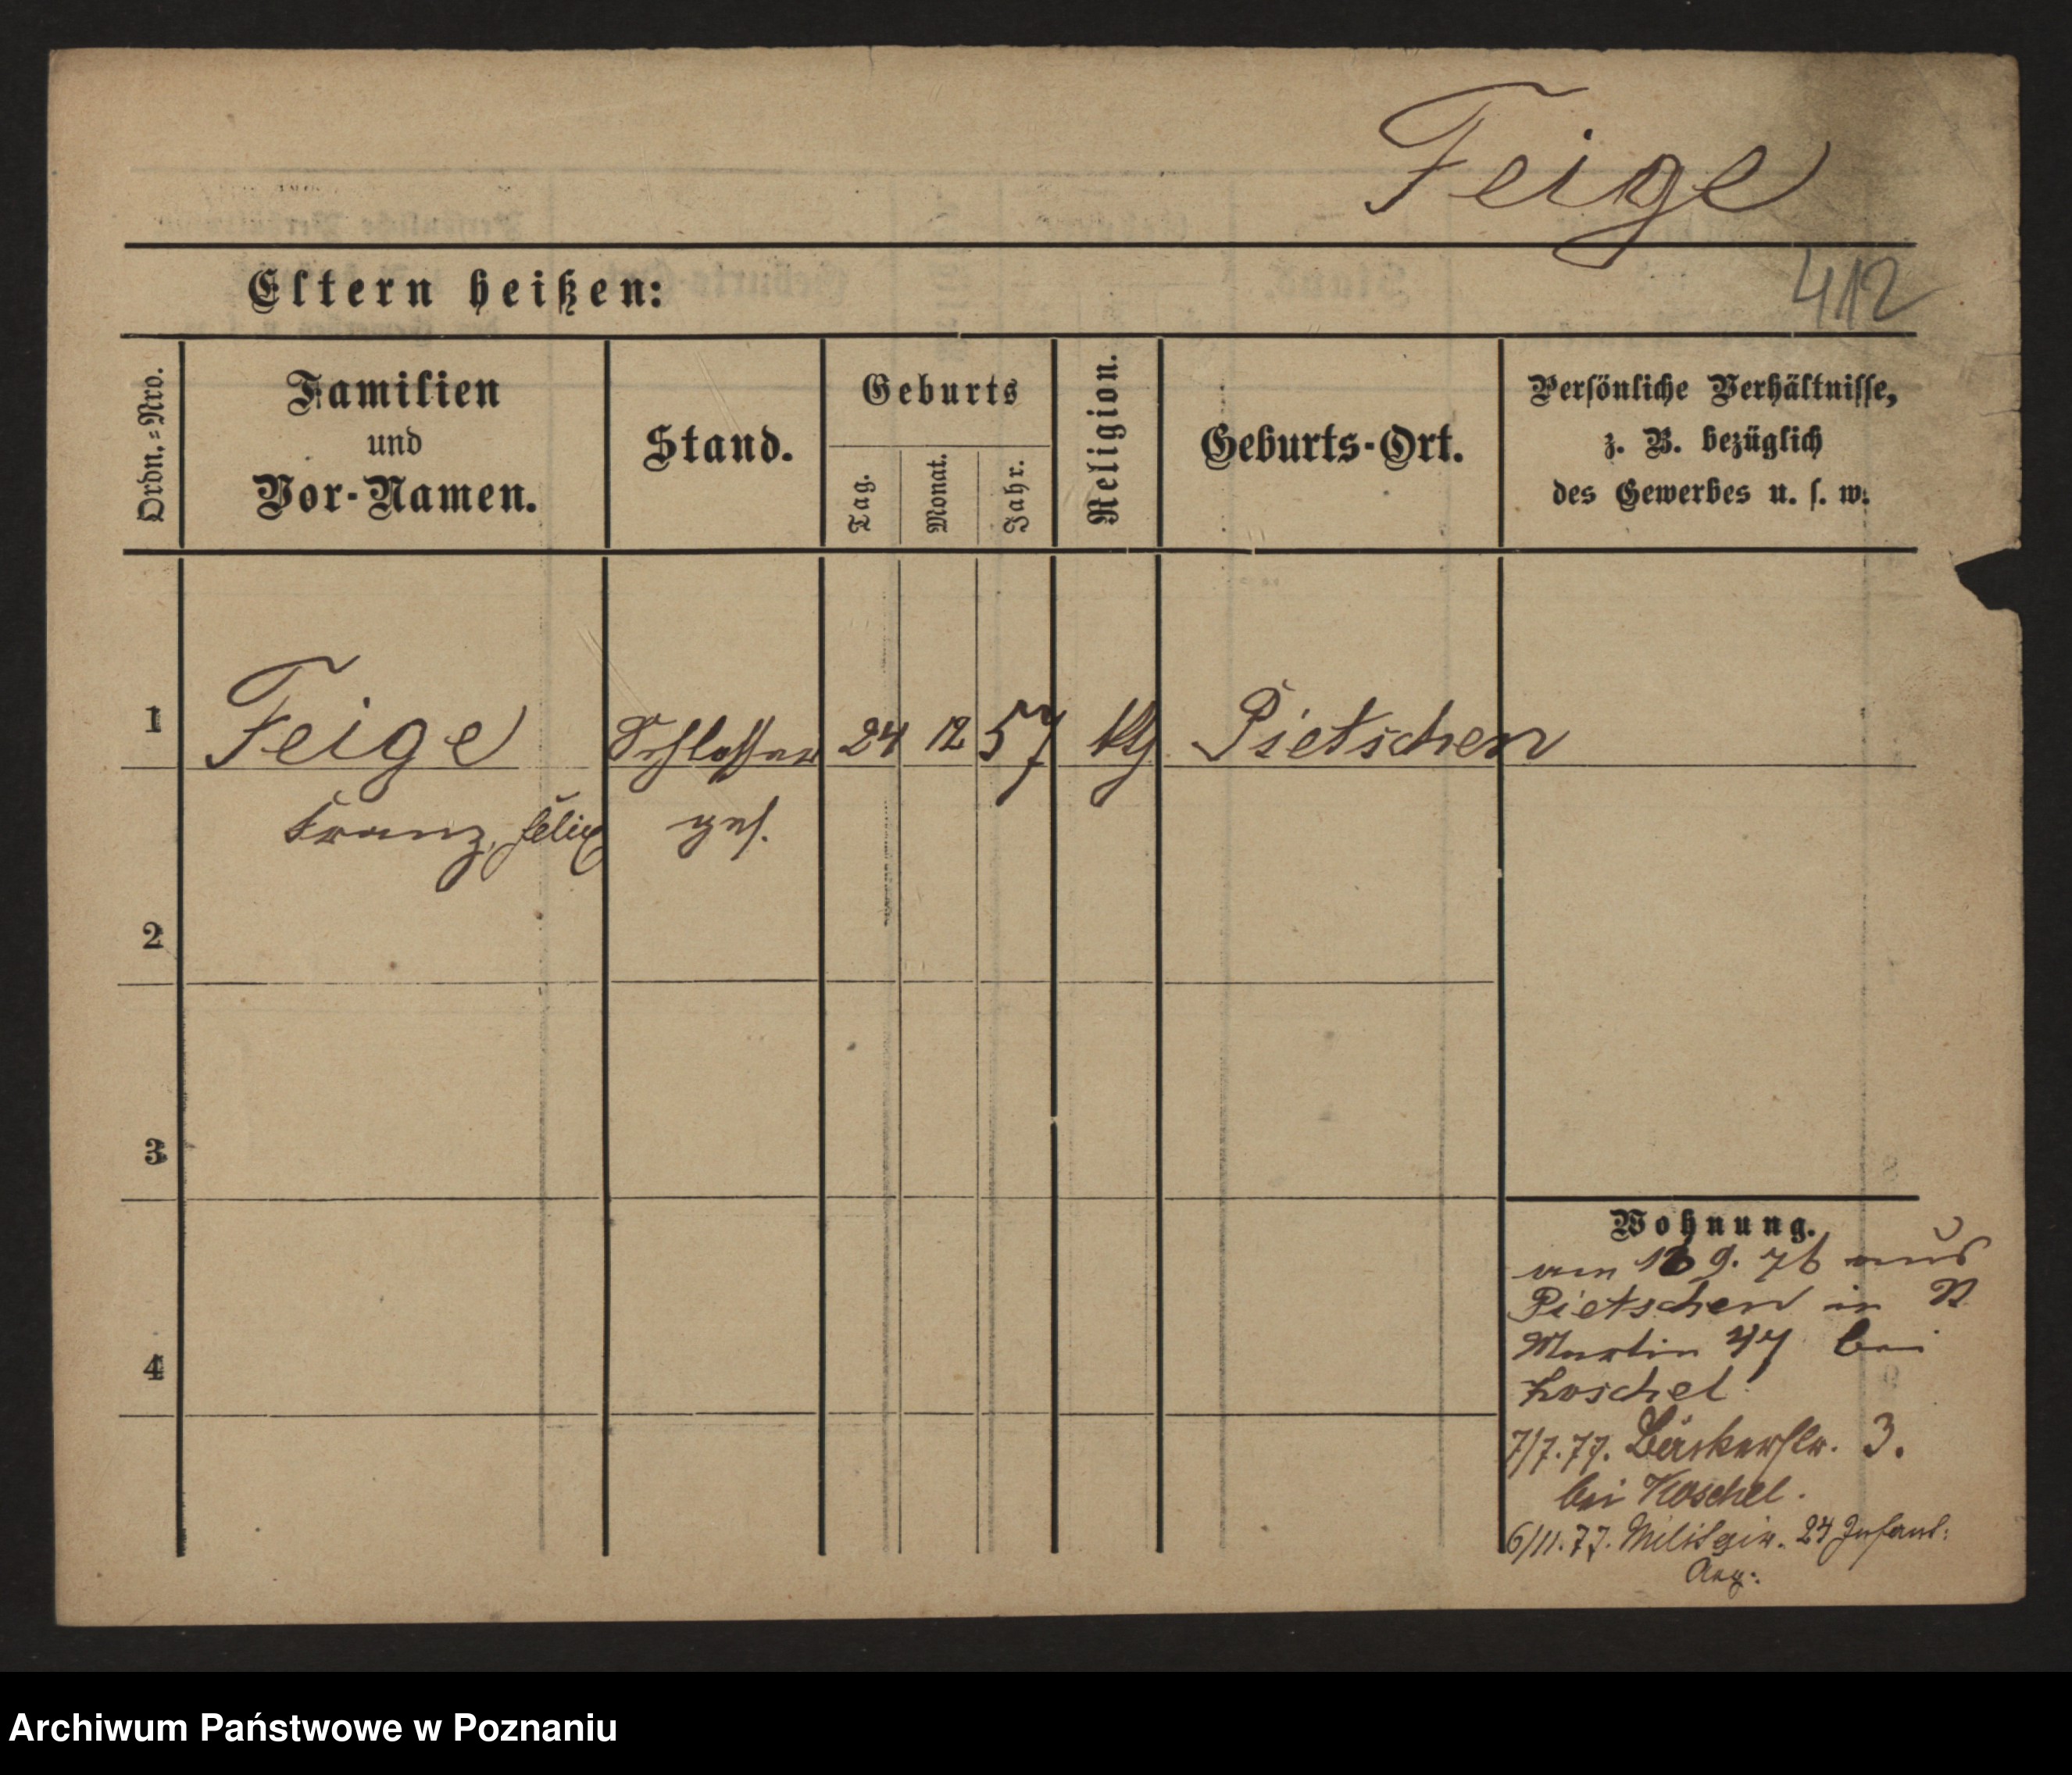 Feige
412
Eltern heißen:
Ordn.=Nro.
Familien
und
Vor-Namen.
Stand.
Geburts
Tag.
Monat.
Jahr.
Religion.
Geburts-Ort.
Persönliche Verhältnisse,
z. B. bezüglich
des Gewerbes u. s. w.
1 Feige Schlosser 24 12 57 ktg Pietschen
Franz, Felix ges.
2
3
4
Wohnung.
am 16 9. 76 aus
Pietschen in
Martin 47 bei
Koschel
7/7. 77. Bäckerstr. 3.
bei Koschel.
6/11. 77. Militair. 24 Infant:
Reg:.
Archiwum Państwowe w Poznaniu